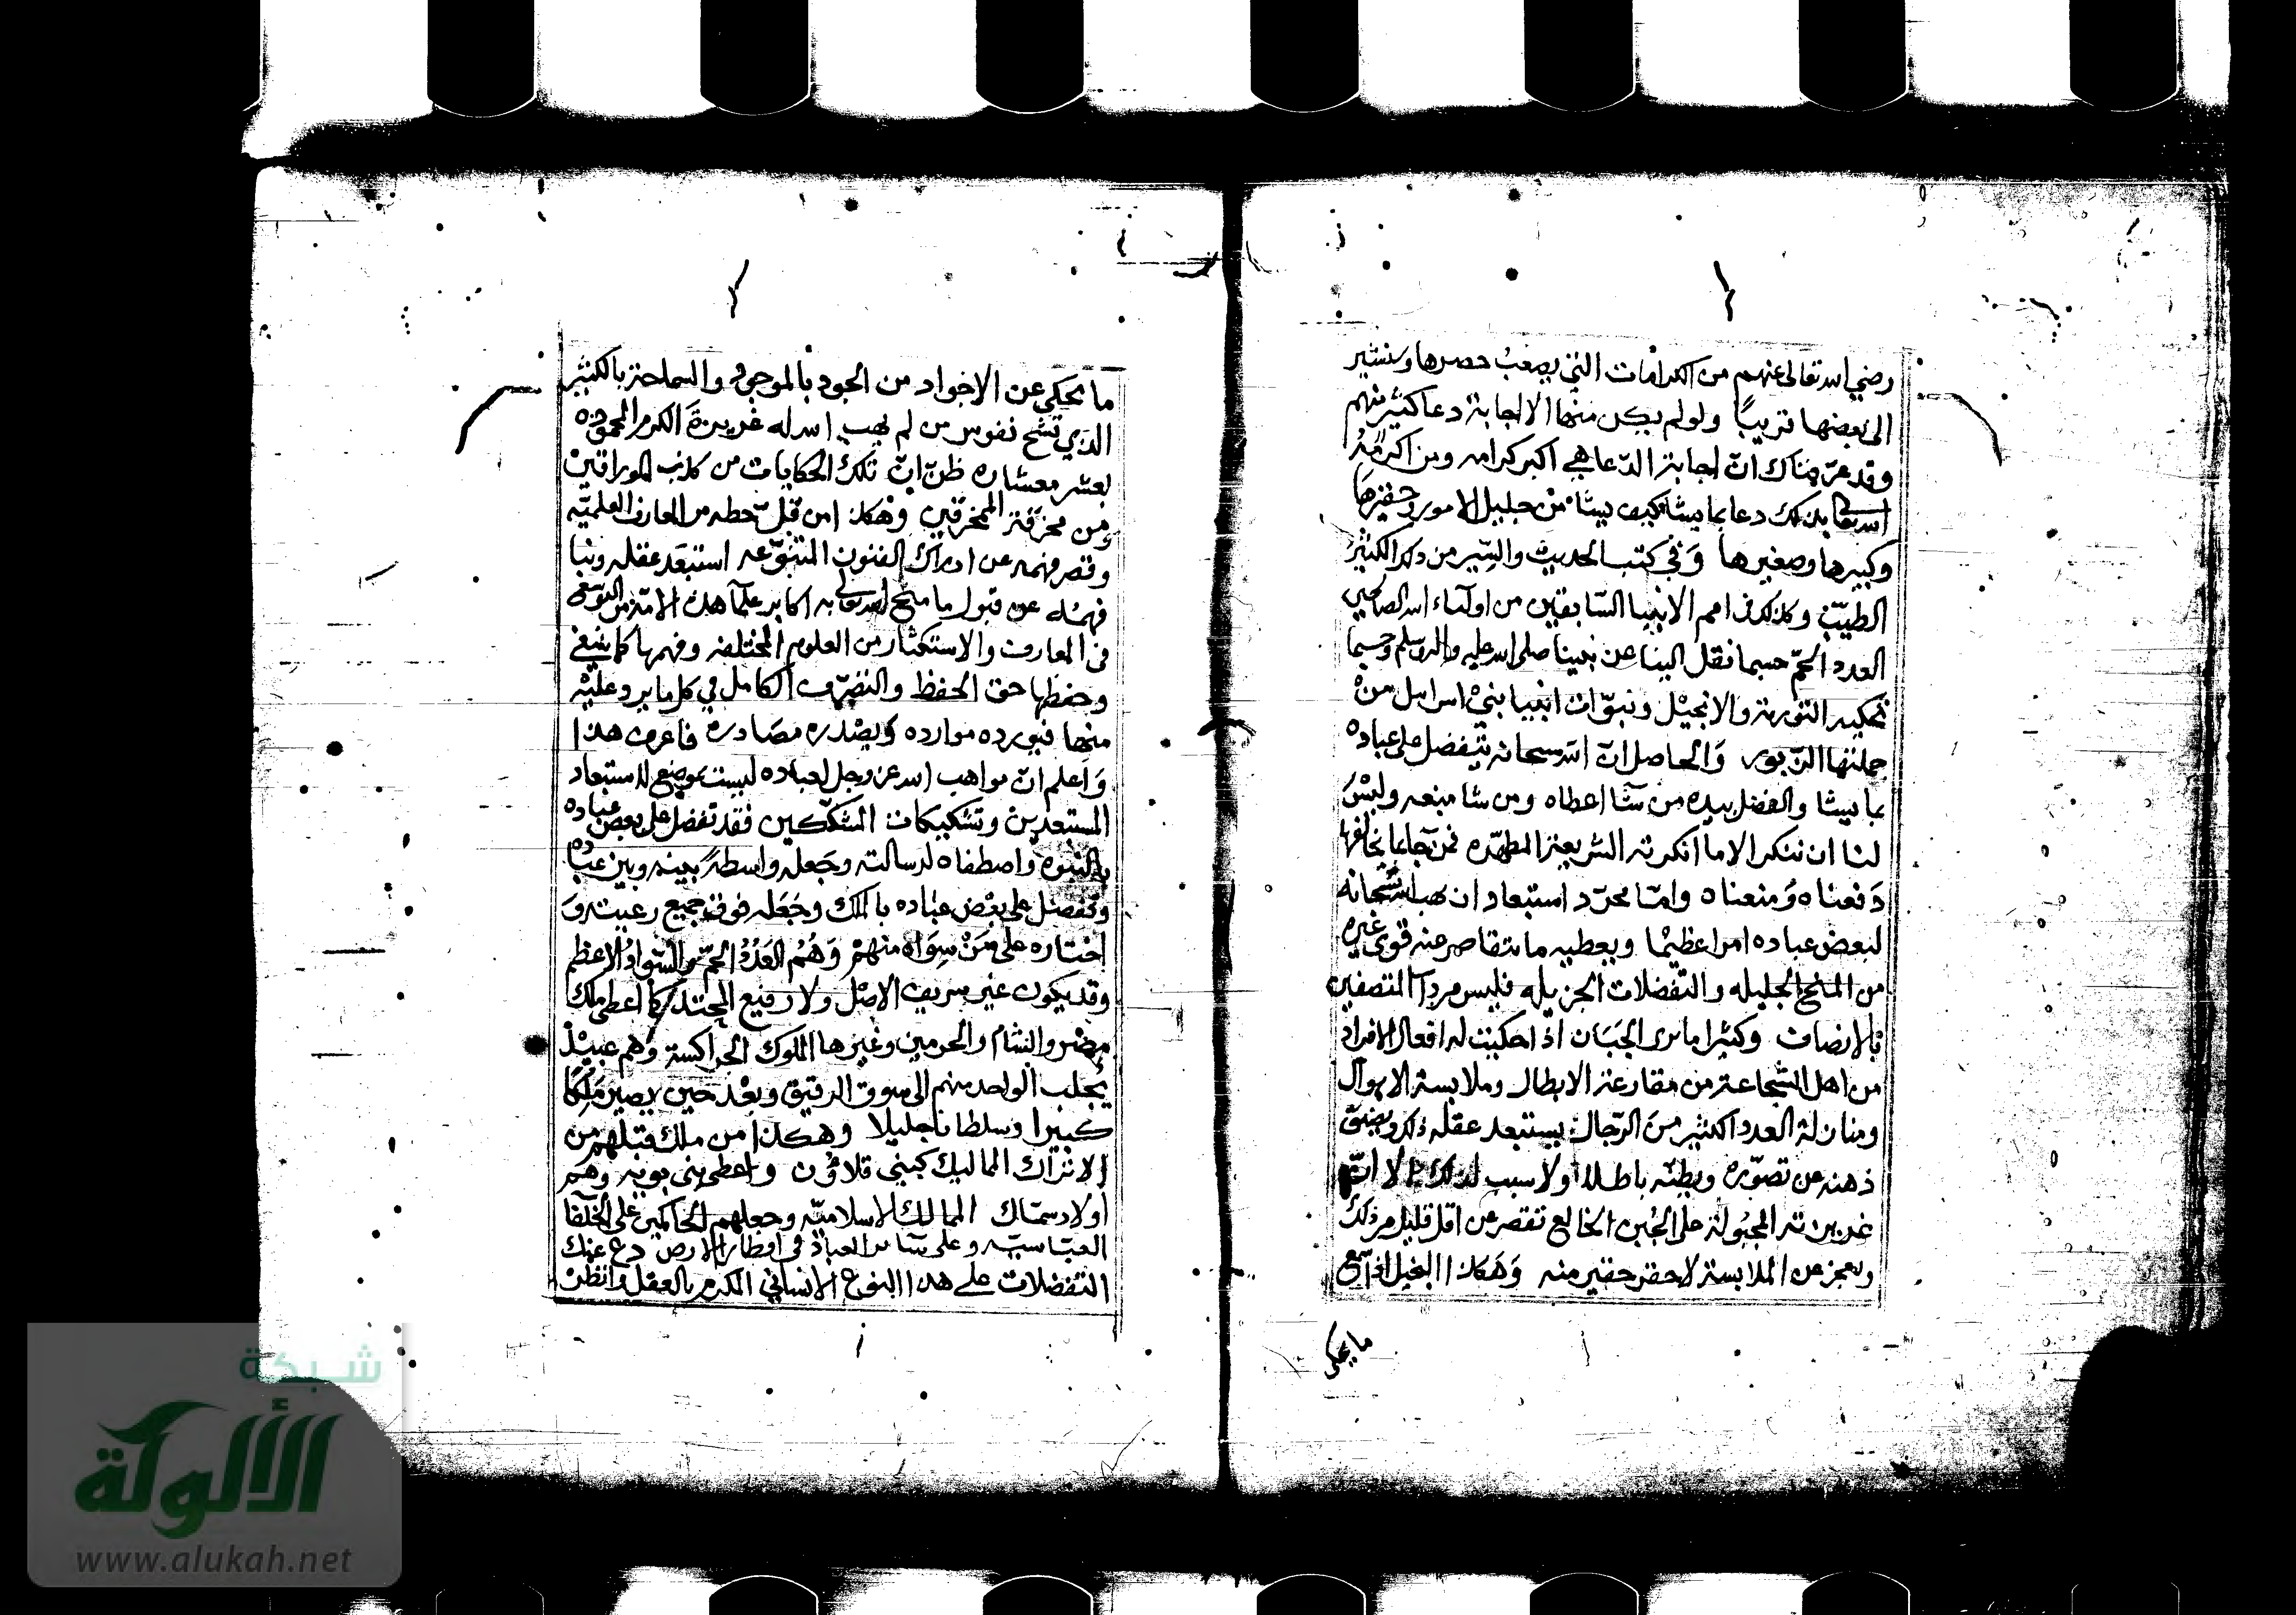 رضي الله تعالى عنهم من الكرامات التي يصعب حصرها وسنشير
الى بعضها قريبًا ولو لم يكن منها الا اجابة دعا كثير منهم
وقد عرّفناك انّ اجابة الدّعا هي اكبر كرامه ومن اكرمهُ
الله تعالى بذلك دعا بما يشا كيف يشا من جليل الامور وحقيرها
وكبيرها وصغيرها وَفي كتب الحديث والسّير من ذلك الكثيْر
الطيّب وكذلك في امم الانبيا السّابقين من اوليَاء الله الصالحين
العدد الجمّ حسبما نقل الينا عن نبينا صلى الله عليه واله وسلم وحسبما
تحكيه التورية والانجيْل ونبوّات انبيا بنيْ اسراىيل منْ
جملتها الزّبور وَالحاصل انّ الله سبحانه يتفضل على عباده
بما يشا والفضل بيده من شآ اعطاه ومن شا منعه وليْسَ
لنا ان ننكر الا ما انكرته الشريعة المطهّره فمن جا بما يخالفها
دَفعناه وَمنعناه وامّا مجرّد استبعاد ان يهب الله سُبْحانه
لبعض عباده امرا عظيمًا ويعطيه ما تتقاصر عنه قوى غيره
من المنح الجليله والتفضلات الجزيله فليس مردآ المتصفين
بالانصاف وكثيرا ما يرى الجَبَان اذا حكيت له افعال الافراد
من اهل الشّجاعة من مقارعة الابطال وملابسة الاهوال
ومنازلة العدد الكثير منَ الرّجال يستبعد عقله ذلك ويضيق
ذهنه عن تصوّره ويظنّه باطلًا ولا سبب لذلك الا انّ
غريزته المجبُولة على الجُبن الخالع تقصر عن اقل قليل من ذلك
وتعجز عن الملابسة لاحقر حقير منه وَهَكذا البخيل اذا سمع
ما يحكى
ما يحكي عن الاجواد من الجود بالموجود والسماحة بالكثيْر
الذي تشحّ نفوس من لم يهب الله له غريزةَ الكرم المحموده
بعشر معشاره ظنّ انّ تلك الحكايات من كذب الوراقيْن
ومن مخرقة الممخرقين وهكذا من قلّ حظه من المعارف العلميّه
وقصر فهمه عن ادراك الفنون المتنوّعه استبعَد عقله ونبا
فهمُه عن قبول ما منح الله تعالى به اكابر علمآ هذه الامّة من التوسّع
في المعارف والاستكثار من العلوم المختلفه وفهمها كما ينبغي
وحفظها حق الحفظ والتصّرف الكامل في كل ما يرد عليْه
منها فيورده موارده وَيصْدره مصَادره فاعرف هذا
وَاعلم انّ مواهب الله عز وجل لعباده ليست بموضع لاستبعاد
المستبعدين وتشكيكات المشككين فقد تفضل على بعض عباده
بالنبوه واصطفاه لرسالته وجَعله واسطةً بينه وبين عباده
وتفضل على بعْض عباده بالملك وجَعَله فوق جميع رعيته وَ
اختاره على مَنْ سِوَاه منهمْ وَهُمُ العَدَدُ الجمّ والسّوادُ الاعظم
وقد يكون غير شريف الاصْل ولا رفيع المحتد كما اعطى ملك
مصْر والشام والحرمين وغيرها الملوك الجراكسة وهم عبيْدٌ
يجلب الواحد منهم الى سوق الرقيق وبعْد حين يصير مَلِكًا
كبيرا وسلطانا جليلا وهكذا من ملك قبلهم من
الاتراك المماليك كبني قلاوُن واعطى بني بويه وهم
اولاد سمّاك الممالك الاسلاميّه وجعلهم الحاكمين على الخلفا
العبّاسيّه وعلى سَائر العباد في اقطار الارض دع عنك
التفضلات على هذا النوع الانساني المكرم بالعقل وانظرْ
شبكة
الألوكة
www.alukah.net